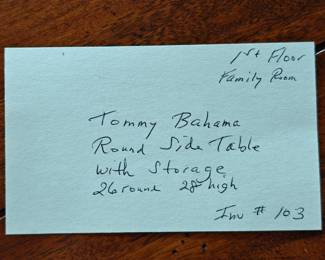 1st Floor
Family Room
Tommy Bahama
Round Side Table
with Storage
26 round 28" high
Inv # 103